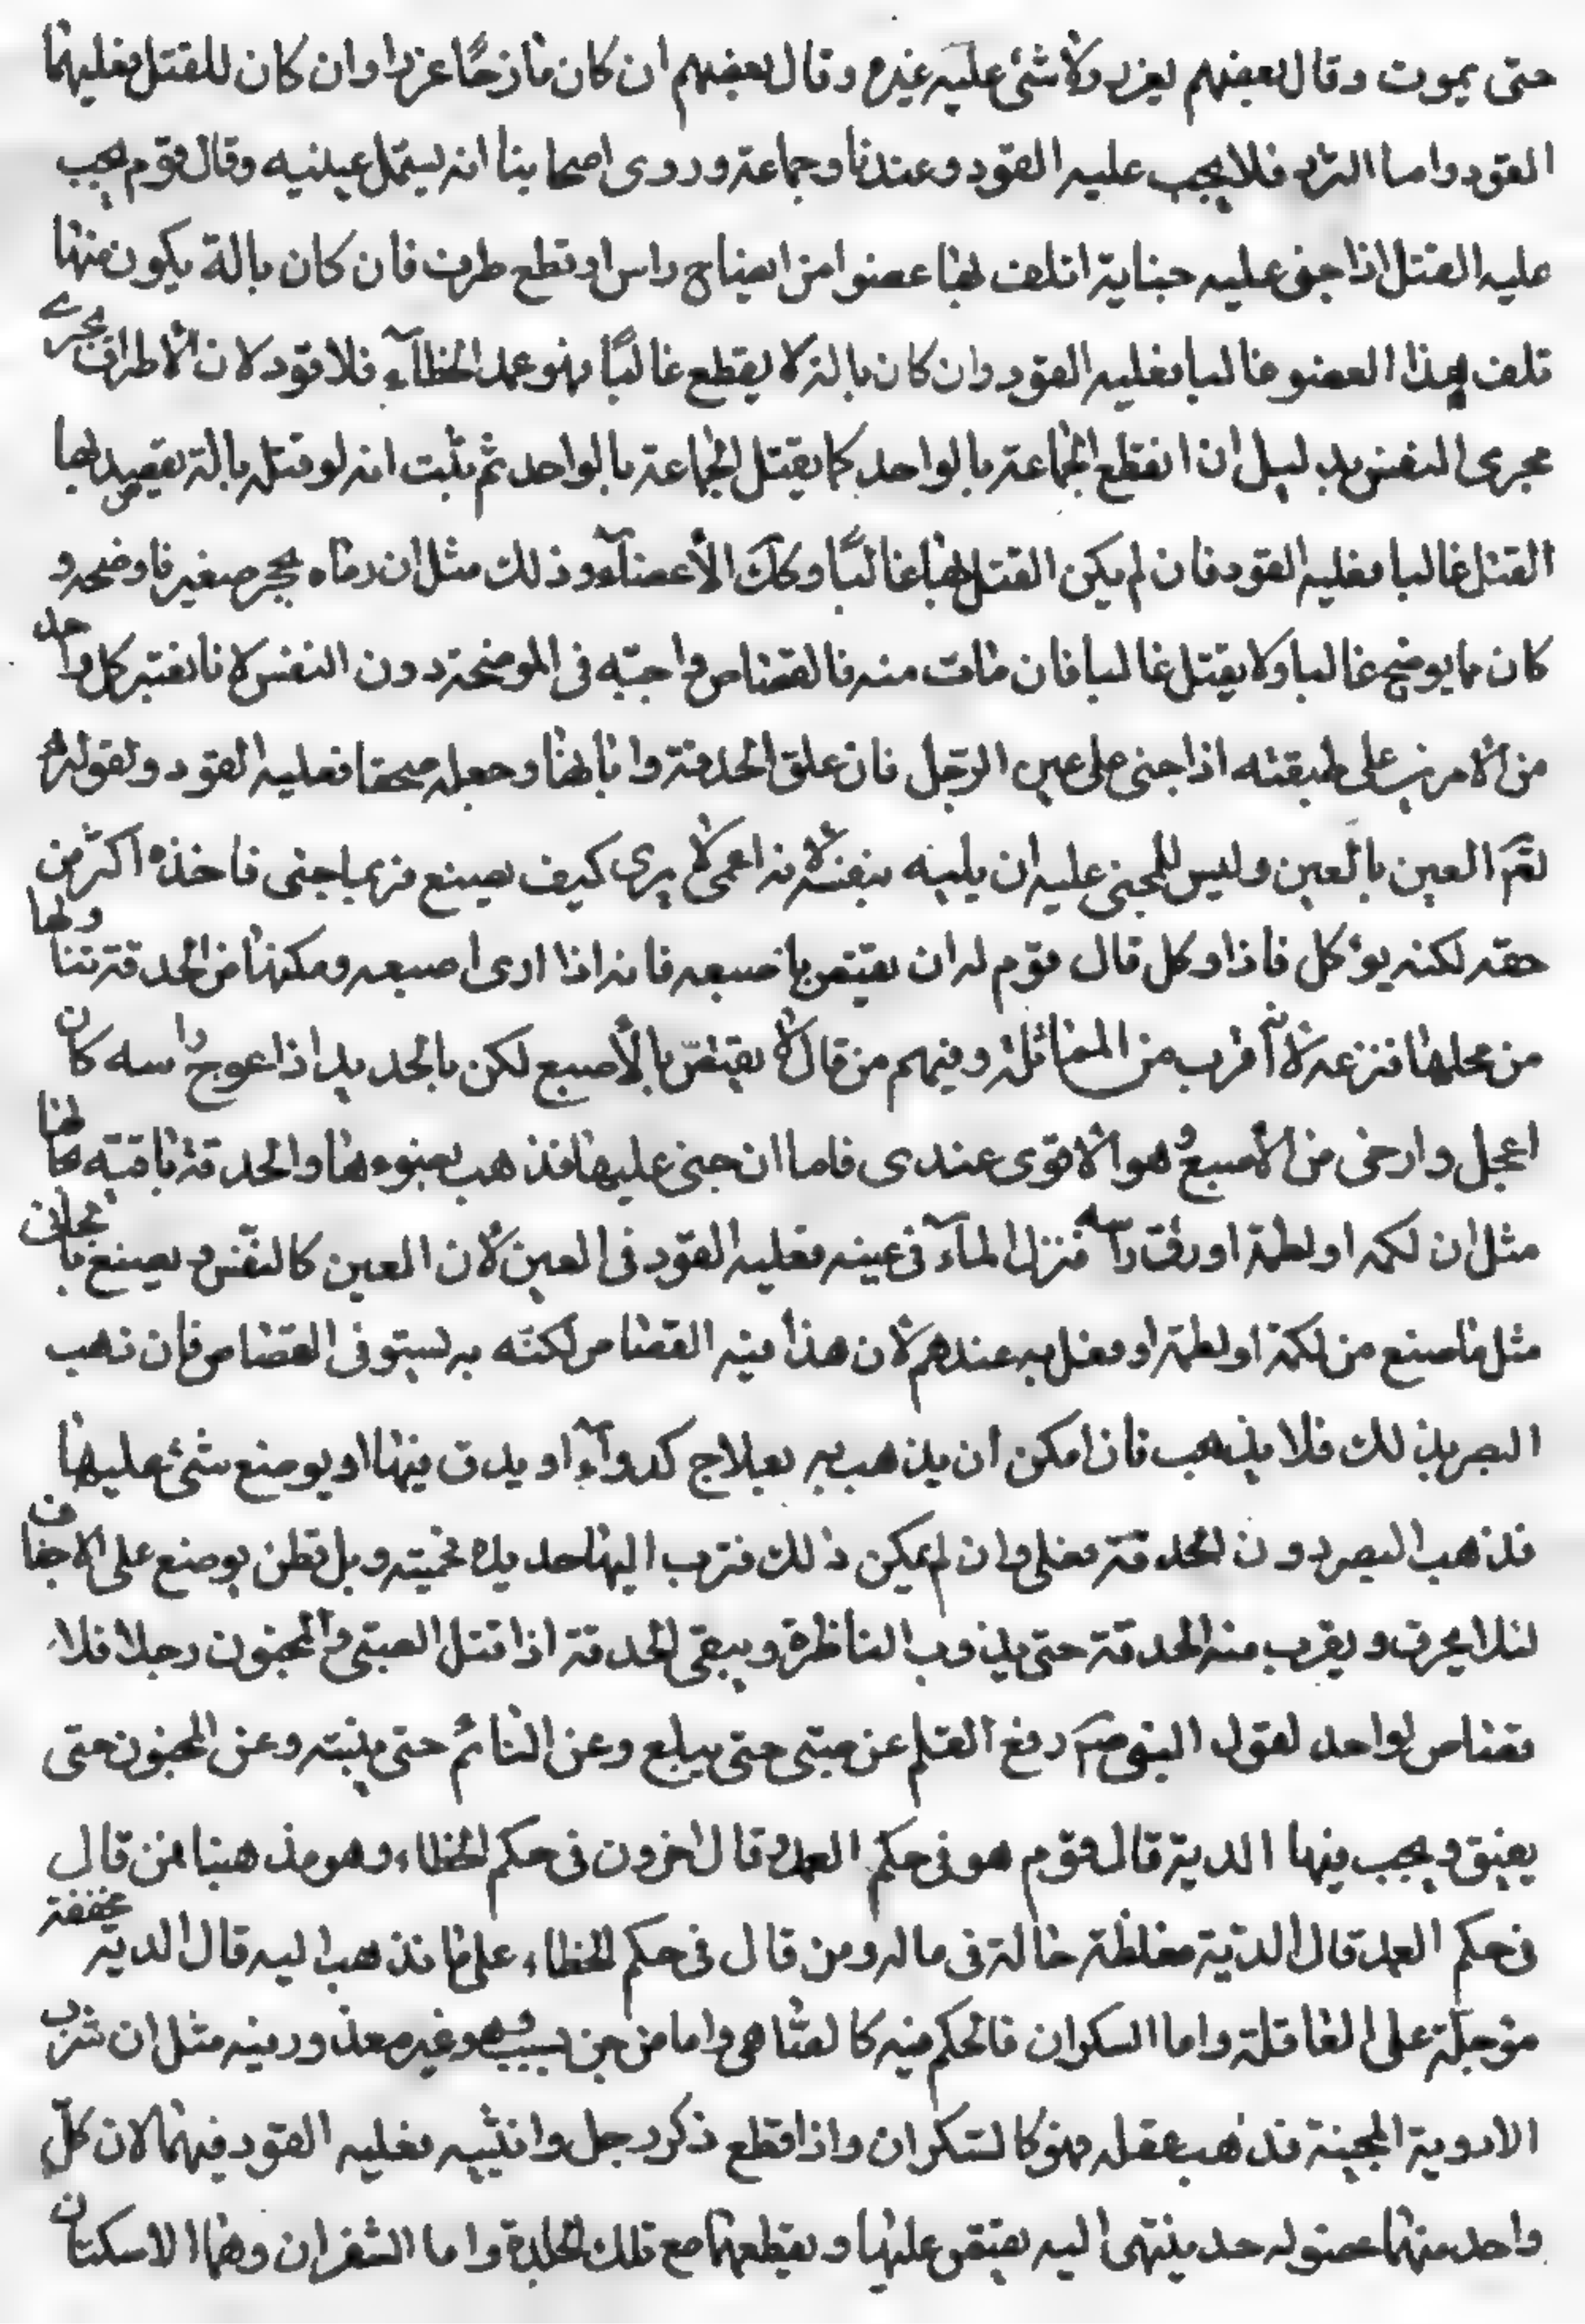 حتى يموت وقال بعضهم يعزر ولا شئ عليه غيره وقال بعضهم ان كان مازحًا عزر وان كان للقتل فعليهما
القود واما الرد فلا يجب عليه القود وعندنا وجماعة وروى اصحابنا انه يسمل عينيه وقال قوم يجب
عليه القتل اذا جنى عليه جناية اتلف بها عضوا من ايضاح راس او قطع طرف فان كان بالة يكون منها
تلف هذا العضو غالبا فعليه القود وان كان بالة لا يقطع غالبًا فهو عمد الخطآء فلا قود لان الاطراف تجرى
مجرى النفس بدليل ان انقطع الجماعة بالواحد كما يقتل الجماعة بالواحد ثم ثبت انه لو قتله بالة يقصد بها
القتل غالبا فعليه القود فان لم يكن القتل بها غالبًا وكك الأعضآء وذلك مثل ان رماه بحجر صغير فاوضحه و
كان مما يوضح غالبا ولا يقتل غالبا فان مات منه فالقصاص واجبه فى الموضحة دون النفس لانا نعتبر كل واحد
من الامرين على طبقته اذا جنى على عين الرجل فان علق الحدقة وابانها وجعله صحقا فعليه القود ولقوله
تعم العين بالعين وليس للمجنى عليه ان يليه بنفسه لانه اعمى لا يرى كيف يصنع فربما جنى فاخذه اكثر من
حقه لكنه يوكل فاذا وكل قال قوم له ان يقتص باصبعه فانه اذا ارى اصبعه ومكنها من الحدقة تناولها
من محلها فنزعه لانه اقرب من المماثلة وفيهم من قال لا يقتصّ بالأصبع لكن بالحديد اذا عوج راسه كان
اعجل وارخى من الأصبع وهو الاقوى عندى فاما ان جنى عليها فذهب بضوءها والحدقة باقية بحالها
مثل ان لكمه او لطمة او دق راسه فنزل المآء فى عينه فعليه القود فى العين لان العين كالنفس ويصنع بالجانى
مثل ما صنع من لكمة او لطمة او فعل به عندهم لان هذا فيه القصاص لكنّه به يستوفى القصاص فان ذهب
البصر بذلك فلا يذهب فان امكن ان يذهب به بعلاج كدوآء او يدق فيها او يوضع شئ عليها
فذهب البصر دون الحدقة فعلى وان لم يمكن ذلك فترب اليها حديدة محميته وبل قطن يوضع على الاجفان
لئلا يحرق ويقرب منه الحدقة حتى يذوب الناظرة ويبقى الحدقة اذا قتل الصبى والمجنون رجلا فلا
قصاص لواحد لقول النبى صم رفع القلم عن صبى حتى يبلع وعن النائم حتى ينبته وعن المجنون حتى
يفيق ويجب فيها الدية قال قوم هو فى حكم العمد وقال اخرون فى حكم الخطاء وهو مذهبنا فمن قال
فى حكم العمد قال الدية مغلظة حالة فى ماله ومن قال فى حكم الخطاء على ما نذهب اليه قال الدية مخففة
مؤجلة على العاقلة واما السكران فالحكم فيه كالصاحى واما من جن بسبب هو غير معذور فيه مثل ان شرب
الادوية المجننة فذهب عقله فهو كالسكران واذا قطع ذكر رجل وانثييه فعليه القود فيهما لان كل
واحد منهما عضو له حد ينتهى اليه يقتص عليها ويقطعها مع تلك الجلدة واما الشفران وهما الاسكتان